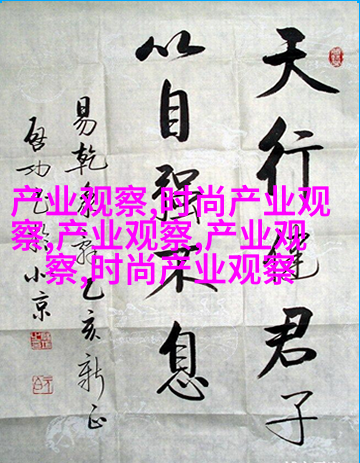 产业观察,时尚产业观
察,产业观察,产业观
察,时尚产业观察
天行健君子
以自强不息
易乾 乙亥新正
启功 小京